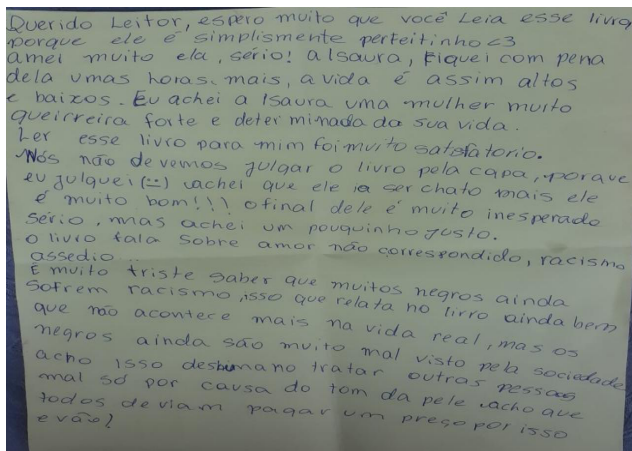 Querido Leitor, espero muito que você Leia esse livro,
porque ele é simplismente perfeitinho <3
amei muito ela, sério! a Isaura, Fiquei com pena
dela umas horas, mais, a vida é assim altos
e baixos. Eu achei a Isaura uma mulher muito
queirreira forte e determinada da sua vida.
Ler esse livro para mim foi muito satsfatorio.
Nós não devemos julgar o livro pela capa, porque
eu julguei (:-) achei que ele ia ser chato mais ele
é muito bom!!! o final dele é muito inesperado
sério, mas achei um pouquinho justo.
O livro fala sobre amor não correspondido, racismo
assedio...
É muito triste saber que muitos negros ainda
sofrem racismo, isso que relata no livro ainda bem
que não acontece mais na vida real, mas os
negros ainda são muito mal visto pela sociedade
acho isso deshumano tratar outras pessoas
mal só por causa do tom da pele acho que
todos deviam pagar um preço por isso
e vão!